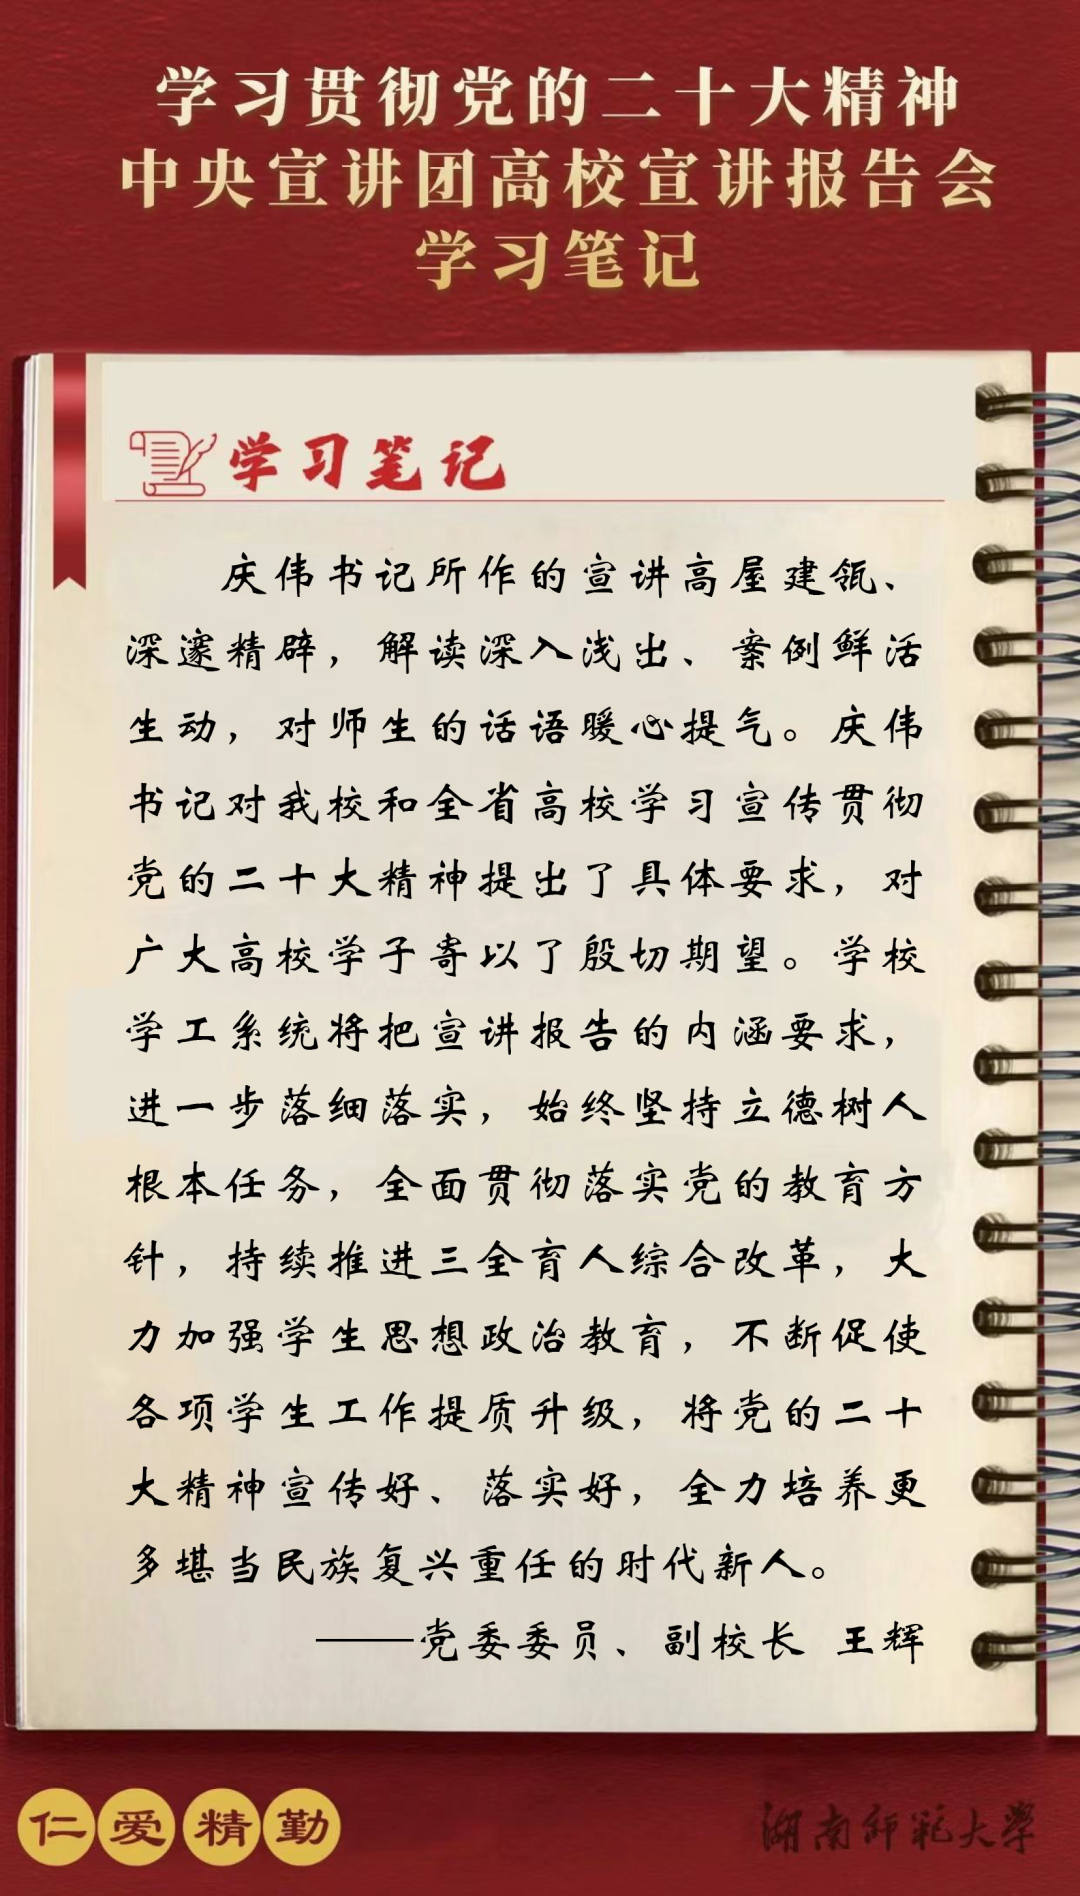 学习贯彻党的二十大精神
中央宣讲团高校宣讲报告会
学习笔记
学习笔记
庆伟书记所作的宣讲高屋建瓴、
深邃精辟，解读深入浅出、案例鲜活
生动，对师生的话语暖心提气。庆伟
书记对我校和全省高校学习宣传贯彻
党的二十大精神提出了具体要求，对
广大高校学子寄以了殷切期望。学校
学工系统将把宣讲报告的内涵要求，
进一步落细落实，始终坚持立德树人
根本任务，全面贯彻落实党的教育方
针，持续推进三全育人综合改革，大
力加强学生思想政治教育，不断促使
各项学生工作提质升级，将党的二十
大精神宣传好、落实好，全力培养更
多堪当民族复兴重任的时代新人。
——党委委员、副校长 王辉
仁爱精勤
湖南师范大学